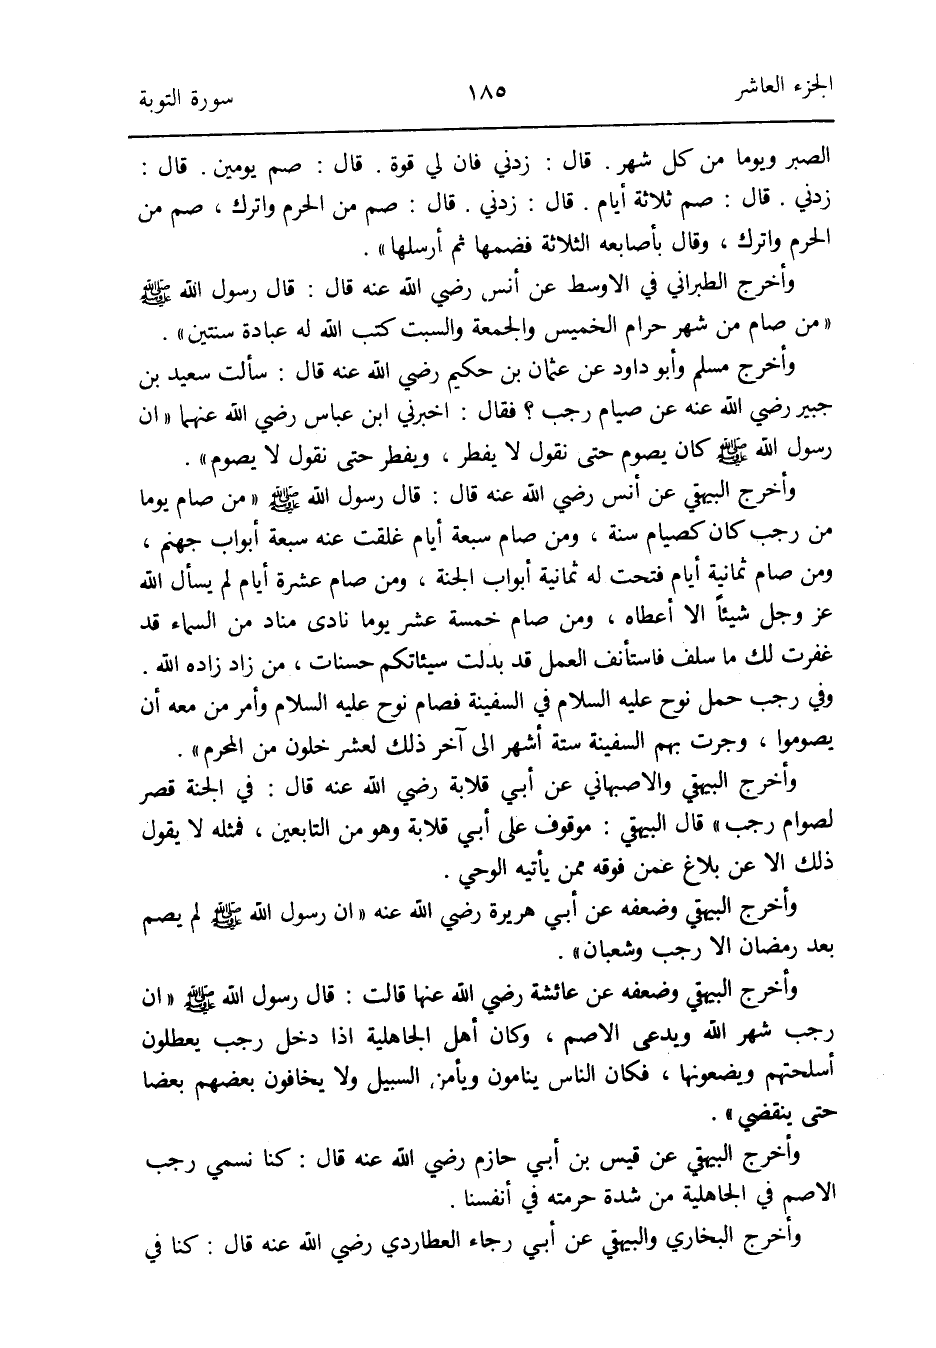 الجزء العاشر ١٨٥ سورة التوبة
الصبر ويوما من كل شهر . قال : زدني فان لي قوة . قال : صم يومين . قال :
زدني . قال : صم ثلاثة أيام . قال : زدني . قال : صم من الحرم واترك ، صم من
الحرم واترك ، وقال بأصابعه الثلاثة فضمها ثم أرسلها» .
وأخرج الطبراني في الاوسط عن أنس رضي الله عنه قال : قال رسول الله ﷺ
«من صام من شهر حرام الخميس والجمعة والسبت كتب الله له عبادة سنتين» .
وأخرج مسلم وأبو داود عن عثمان بن حكيم رضي الله عنه قال : سألت سعيد بن
جبير رضي الله عنه عن صيام رجب ؟ فقال : اخبرني ابن عباس رضي الله عنهما «ان
رسول الله ﷺ كان يصوم حتى نقول لا يفطر ، ويفطر حتى نقول لا يصوم» .
وأخرج البيهقي عن أنس رضي الله عنه قال : قال رسول الله ﷺ «من صام يوما
من رجب كان كصيام سنة ، ومن صام سبعة أيام غلقت عنه سبعة أبواب جهنم ،
ومن صام ثمانية أيام فتحت له ثمانية أبواب الجنة ، ومن صام عشرة أيام لم يسأل الله
عز وجل شيئاً الا أعطاه ، ومن صام خمسة عشر يوما نادى مناد من السماء قد
غفرت لك ما سلف فاستأنف العمل قد بدلت سيئاتكم حسنات ، من زاد زاده الله .
وفي رجب حمل نوح عليه السلام في السفينة فصام نوح عليه السلام وأمر من معه أن
يصوموا ، وجرت بهم السفينة ستة أشهر الى آخر ذلك لعشر خلون من المحرم» .
وأخرج البيهقي والاصبهاني عن أبي قلابة رضي الله عنه قال : في الجنة قصر
لصوام رجب» قال البيهقي : موقوف على أبي قلابة وهو من التابعين ، فمثله لا يقول
ذلك الا عن بلاغ عمن فوقه ممن يأتيه الوحي .
وأخرج البيهقي وضعفه عن أبي هريرة رضي الله عنه «ان رسول الله ﷺ لم يصم
بعد رمضان الا رجب وشعبان» .
وأخرج البيهقي وضعفه عن عائشة رضي الله عنها قالت : قال رسول الله ﷺ «ان
رجب شهر الله ويدعى الاصم ، وكان أهل الجاهلية اذا دخل رجب يعطلون
أسلحتهم ويضعونها ، فكان الناس ينامون ويأمن السبيل ولا يخافون بعضهم بعضا
حتى ينقضي» .
وأخرج البيهقي عن قيس بن أبي حازم رضي الله عنه قال : كنا نسمي رجب
الاصم في الجاهلية من شدة حرمته في أنفسنا .
وأخرج البخاري والبيهقي عن أبي رجاء العطاردي رضي الله عنه قال : كنا في